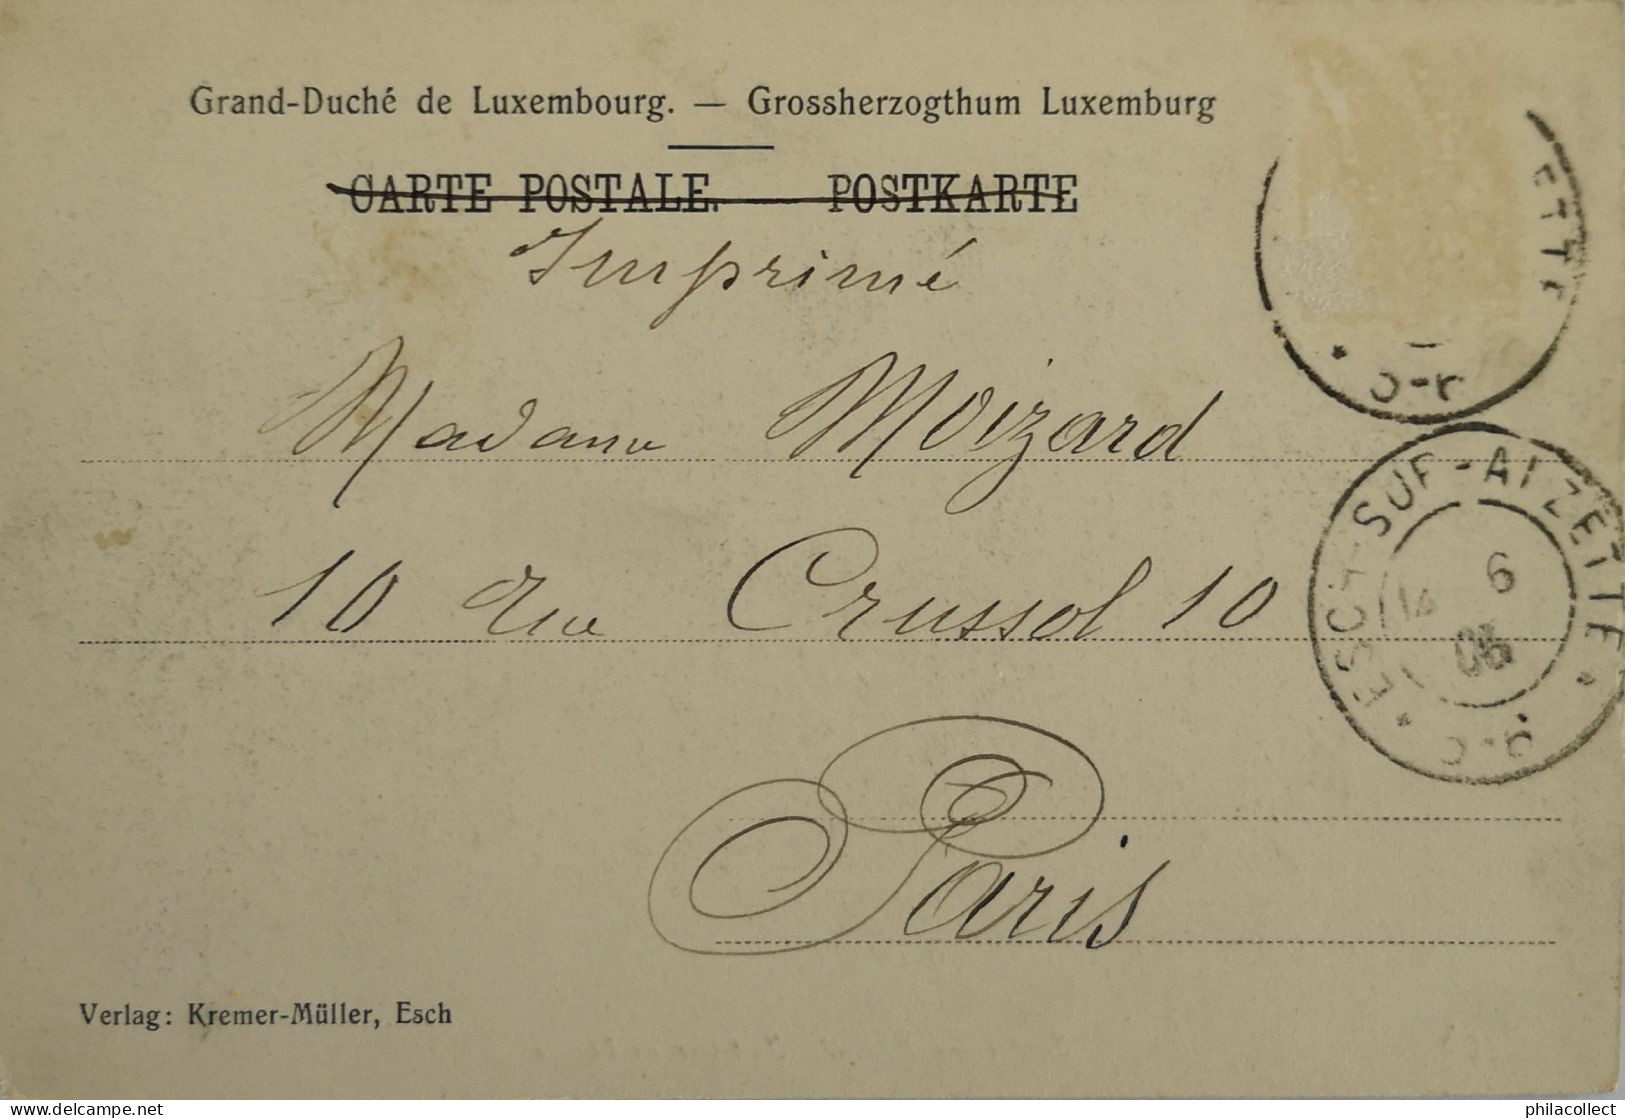 Grand-Duché de Luxembourg. — Grossherzogthum Luxemburg
CARTE POSTALE. POSTKARTE
Imprimé
ETTE
Madame Moizard
ESCH-SUR-ALZETTE
10 rue Crussol 10
6
Paris
Verlag: Kremer-Müller, Esch
www.delcampe.net
philacollect